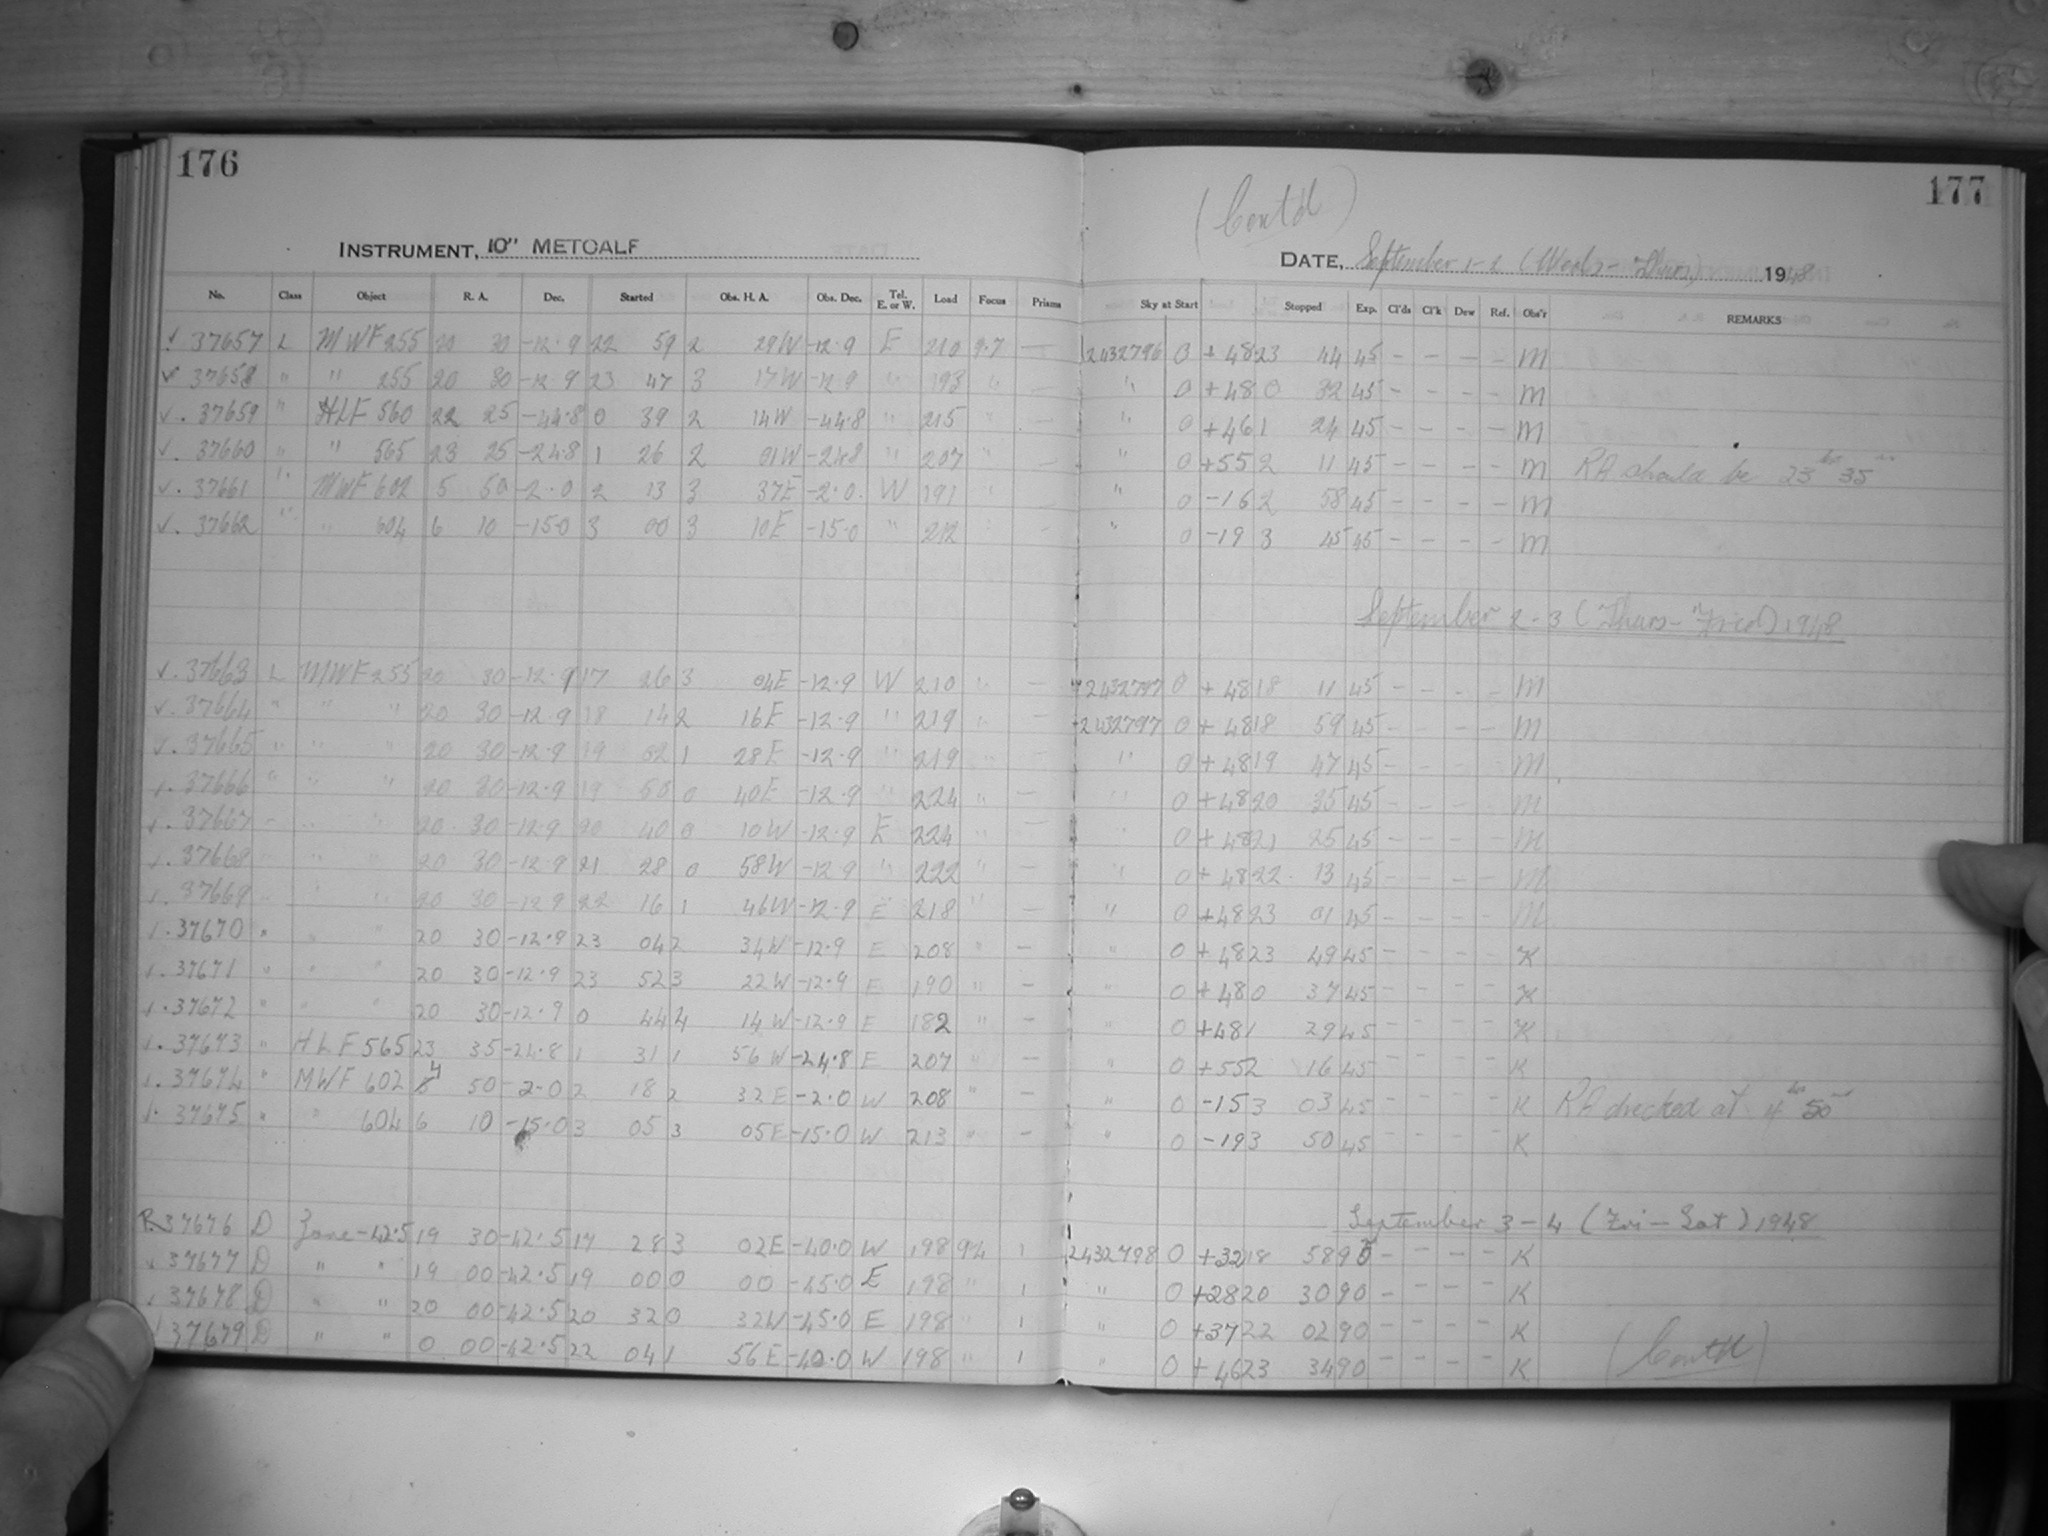 176
177
(Cont'd)
INSTRUMENT, 10" METCALF
DATE, September 1-2 (Weds-Thurs) 1948
No. Class Object R. A. Dec. Started Obs. H. A. Obs. Dec. Tel. E. or W. Load Focus Prisms Sky at Start Stopped Exp. Cl'ds Cl'k Dew Ref. Obs'r REMARKS
✓ 37657 L MWF 255 20 30 -12.9 22 59 2 29W -12.9 E 210 9.7 — 2432796 0 +48 23 44 45 - - - - M
✓ 37658 " " 255 20 30 -12.9 23 47 3 17W -12.9 " 193 " — " 0 +48 0 32 45 - - - - M
✓. 37659 " HLF 560 22 25 -44.8 0 39 2 14W -44.8 " 215 " — " 0 +46 1 24 45 - - - - M
✓. 37660 " " 565 23 25 -24.8 1 26 2 01W -24.8 " 207 " — " 0 +55 2 11 45 - - - - M RA should be 23 hr 35 m
✓. 37661 " MWF 602 5 50 -2.0 2 13 3 37E -2.0 W 191 " — " 0 -16 2 58 45 - - - - M
✓. 37662 " " 604 6 10 -15.0 3 00 3 10E -15.0 " 212 " — " 0 -19 3 45 45 - - - - M
September 2-3 (Thurs-Fried) 1948
✓. 37663 L MWF 255 20 30 -12.9 17 26 3 04E -12.9 W 210 " — 2432797 0 +48 18 11 45 - - - - M
✓. 37664 " " " 20 30 -12.9 18 14 2 16E -12.9 " 219 " — 2432797 0 +48 18 59 45 - - - - M
✓. 37665 " " " 20 30 -12.9 19 02 1 28E -12.9 " 219 " — " 0 +48 19 47 45 - - - - M
✓. 37666 " " " 20 30 -12.9 19 50 0 40E -12.9 " 224 " — " 0 +48 20 35 45 - - - - M
✓. 37667 " " " 20 30 -12.9 20 40 0 10W -12.9 E 224 " — " 0 +48 21 25 45 - - - - M
✓. 37668 " " " 20 30 -12.9 21 28 0 58W -12.9 " 222 " — " 0 +48 22 13 45 - - - - M
✓. 37669 " " " 20 30 -12.9 22 16 1 46W -12.9 E 218 " — " 0 +48 23 01 45 - - - - M
✓. 37670 " " " 20 30 -12.9 23 04 2 34W -12.9 E 208 " — " 0 +48 23 49 45 - - - - K
✓. 37671 " " " 20 30 -12.9 23 52 3 22W -12.9 E 190 " — " 0 +48 0 37 45 - - - - K
✓. 37672 " " " 20 30 -12.9 0 44 4 14W -12.9 E 182 " — " 0 +48 1 29 45 - - - - K
✓. 37673 " HLF 565 23 35 -24.8 1 31 1 56W -24.8 E 207 " — " 0 +55 2 16 45 - - - - K
✓. 37674 " MWF 602 4 50 -2.0 2 18 2 32E -2.0 W 208 " — " 0 -15 3 03 45 - - - - K RA checked at 4 hr 50 m
✓. 37675 " " 604 6 10 -15.0 3 05 3 05E -15.0 W 213 " — " 0 -19 3 50 45 - - - - K
September 3-4 (Fri-Sat) 1948
R. 37676 D Zone -42.5 19 30 -42.5 17 28 3 02E -40.0 W 198 9.4 1 2432798 0 +32 18 58 90 - - - - K
✓. 37677 D " " 19 00 -42.5 19 00 0 00 -45.0 E 198 " 1 " 0 +28 20 30 90 - - - - K
✓. 37678 D " " 20 00 -42.5 20 32 0 32W -45.0 E 198 " 1 " 0 +37 22 02 90 - - - - K
✓ 37679 D " " 0 00 -42.5 22 04 1 56E -40.0 W 198 " 1 " 0 +46 23 34 90 - - - - K
(Cont'd)